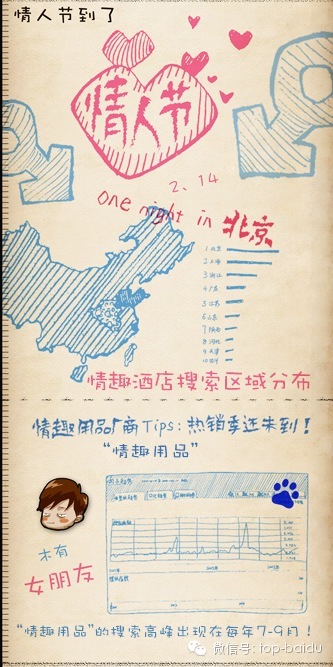 情人节到了
情人节
2.14
one night in 北京
1 北京
2 上海
3 浙江
4 广东
5 江苏
6 山东
7 陕西
8 河北
9 天津
情趣酒店搜索区域分布
情趣用品厂商Tips:热销季还未到!
“情趣用品”
木有
女朋友
“情趣用品”的搜索高峰出现在每年7-9月!
微信号: top-baidu